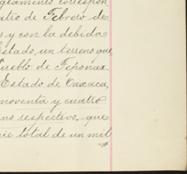 correspon
atro de Febrero de
s y con la debida
Estado, un terreno que
Pueblo de Teponax
Estado de Oaxaca,
noventa y cuatro
no respectivo, que
cie total de un mil